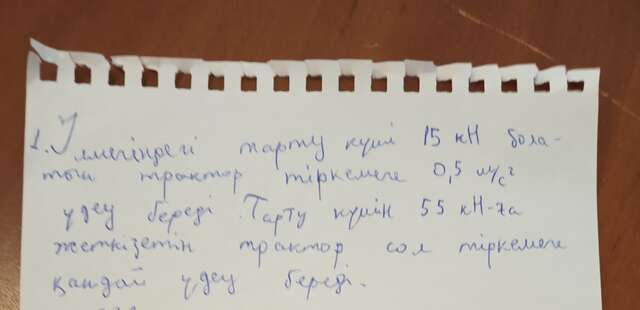 1. Ілмегіндегі тарту күші 15 кН бола-
тын трактор тіркемеге 0,5 м/с²
үдеу береді. Тарту күшін 55 кН-ға
жеткізетін трактор сол тіркемеге
қандай үдеу береді.